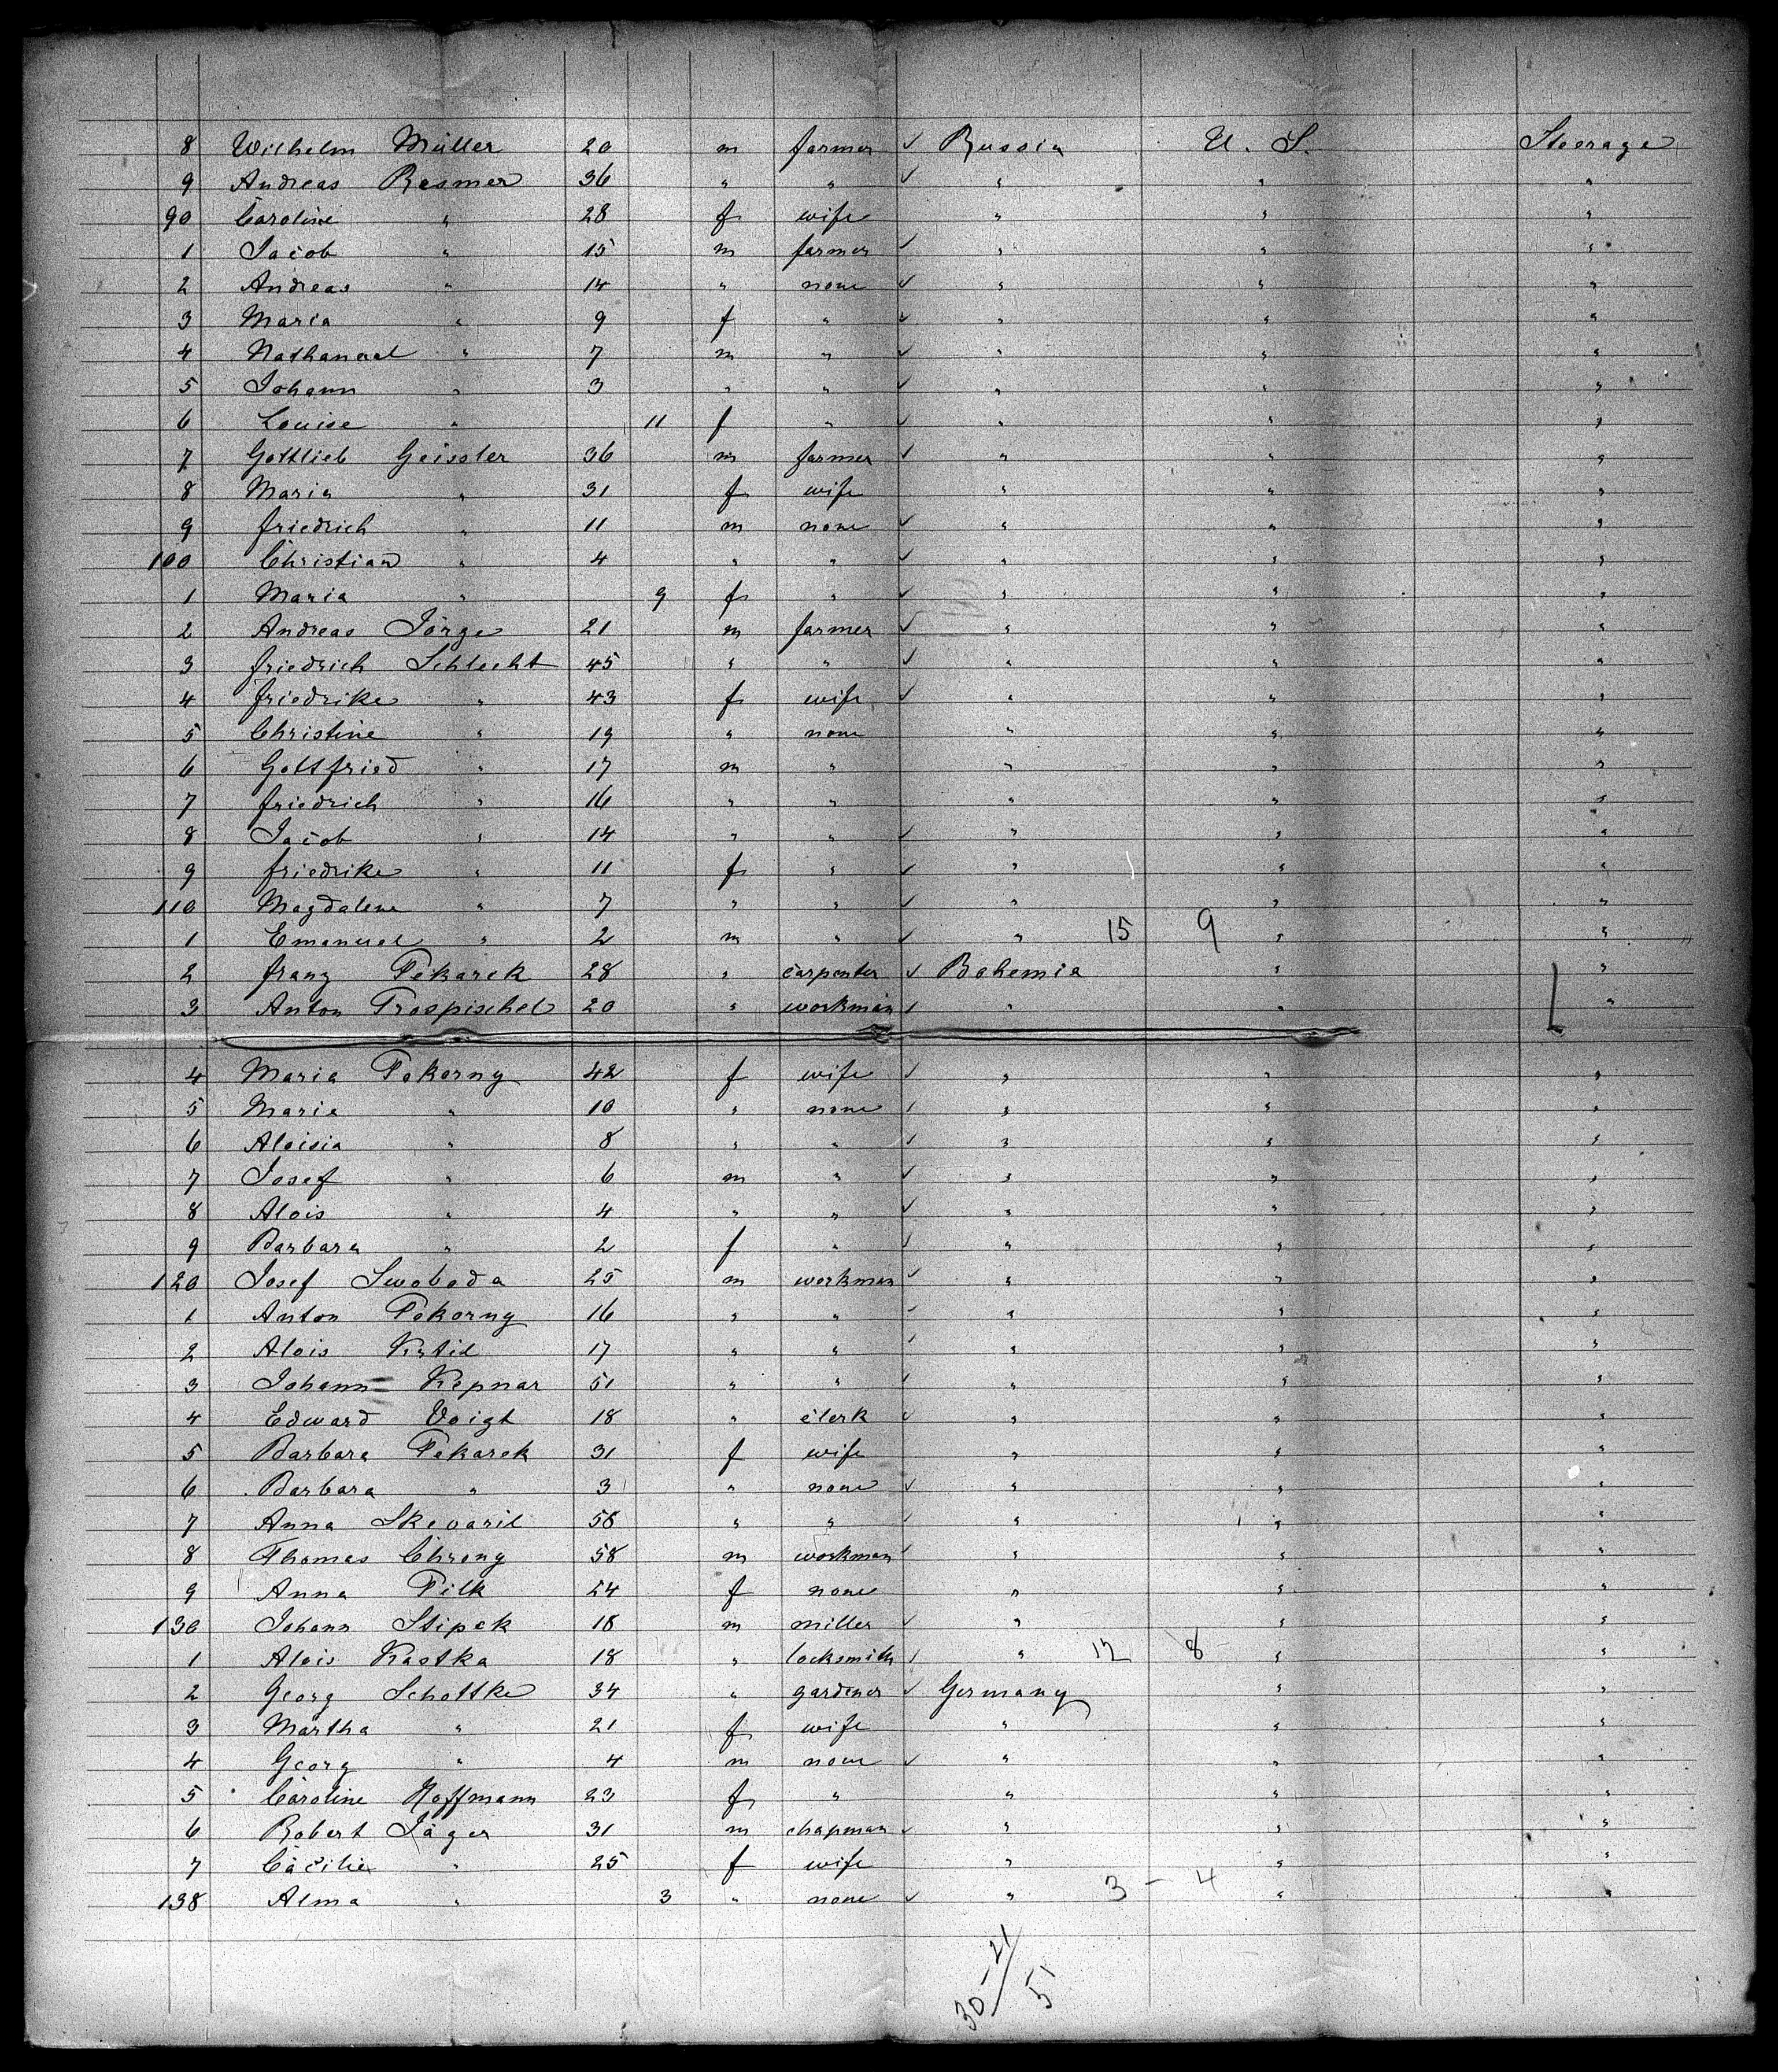 8 Wilhelm Müller 20 m farmer ✓ Russia U. S. Steerage
9 Andreas Resmer 36 " " ✓ " " "
90 Caroline " 28 f wife " " "
1 Jacob " 15 m farmer ✓ " " "
2 Andreas " 14 " none ✓ " " "
3 Maria " 9 f " ✓ " " "
4 Nathanael " 7 m " ✓ " " "
5 Johann " 3 " " ✓ " " "
6 Louise " 11 f " ✓ " " "
7 Gottlieb Geissler 36 m farmer ✓ " " "
8 Maria " 31 f wife " " "
9 Friedrich " 11 m none ✓ " " "
100 Christian " 4 " " ✓ " " "
1 Maria " 9 f " ✓ " " "
2 Andreas Jörge 21 m farmer ✓ " " "
3 Friedrich Schlecht 45 " " ✓ " " "
4 Friedrike " 43 f wife ✓ " " "
5 Christine " 19 " none " " "
6 Gottfried " 17 m " " " "
7 Friedrich " 16 " " " " "
8 Jacob " 14 " " ✓ " " "
9 Friedrike " 11 f " ✓ " " "
110 Magdalene " 7 " " ✓ " " "
1 Emanuel " 2 m " ✓ " 15 9 " "
2 Franz Pekarek 28 " carpenter ✓ Bohemia " "
3 Anton Prospischel 20 " workman ✓ " " "
4 Maria Pokorny 42 f wife ✓ " " "
5 Marie " 10 " none ✓ " " "
6 Aloisia " 8 " " ✓ " " "
7 Josef " 6 m " ✓ " " "
8 Alois " 4 " " ✓ " " "
9 Barbara " 2 f " ✓ " " "
120 Josef Swoboda 25 m workman ✓ " " "
1 Anton Pokorny 16 " " ✓ " " "
2 Alois Kutil 17 " " ✓ " " "
3 Johann Kepnar 51 " " ✓ " " "
4 Edward Voigt 18 " clerk ✓ " " "
5 Barbara Pekarek 31 f wife " " "
6 Barbara " 3 " none ✓ " " "
7 Anna Skevaril 56 " " ✓ " " "
8 Thomas Chrony 58 m workman ✓ " " "
9 Anna Pilk 24 f none " " "
130 Johann Stipek 18 m miller ✓ " " "
1 Alois Kastka 18 " locksmith ✓ " 12 8 " "
2 Georg Schottke 34 " gardener ✓ Germany " "
3 Martha " 21 f wife " " "
4 Georg " 4 m none ✓ " " "
5 Caroline Hoffmann 23 f " " " "
6 Robert Jäger 31 m chapman ✓ " " "
7 Cäcilie " 25 f wife " " "
138 Alma " 3 " none ✓ " 3 - 4 " "
30 - 21 / 51